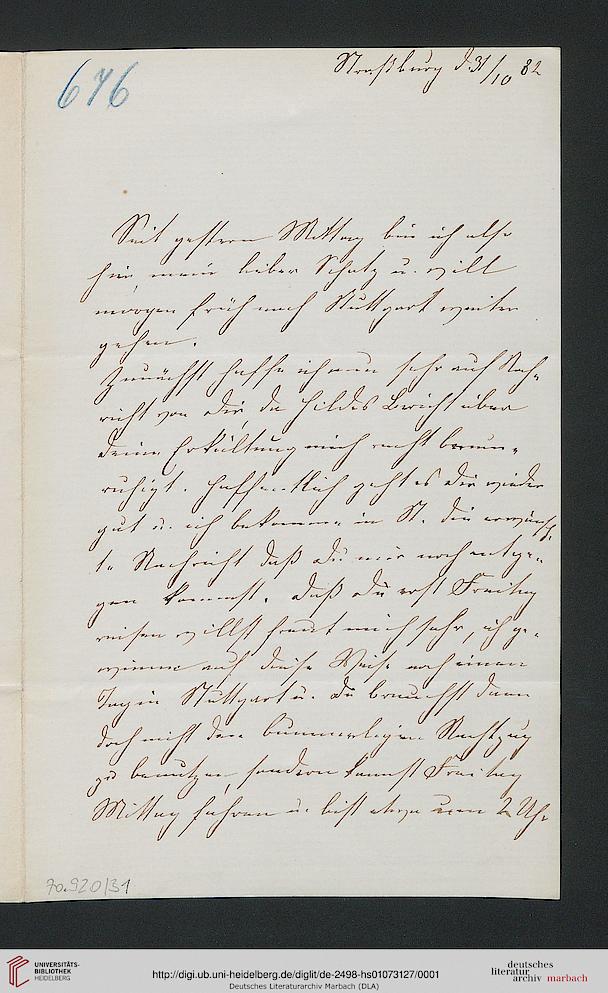 646
Straßburg d. 31/10 82
Seit gestern Mittag bin ich also
hier, mein lieber Schatz u. will
morgen früh nach Stuttgart weiter
gehen.
Zunächst hoffe ich nun sehr auf Nach-
richt von Dir, da Hildes Bericht über
Deine Erkältung mich recht beun-
ruhigt. Hoffentlich geht es Dir wieder
gut u. ich bekomme in St. die erwünsch-
te Nachricht daß Du mir noch entge-
gen kommst. Daß Du erst Freitag
reisen willst freut mich sehr, ich ge-
winne auf diese Weise noch einen
Tag in Stuttgart u. Du brauchst dann
doch nicht den bummeligen Nachtzug
zu benutzen, sondern kannst Freitag
Mittag fahren u. bist etwa um 2 Uhr
70.920/31
UNIVERSITÄTS-
BIBLIOTHEK
HEIDELBERG
http://digi.ub.uni-heidelberg.de/diglit/de-2498-hs01073127/0001
Deutsches Literaturarchiv Marbach (DLA)
deutsches
literatur
archiv marbach